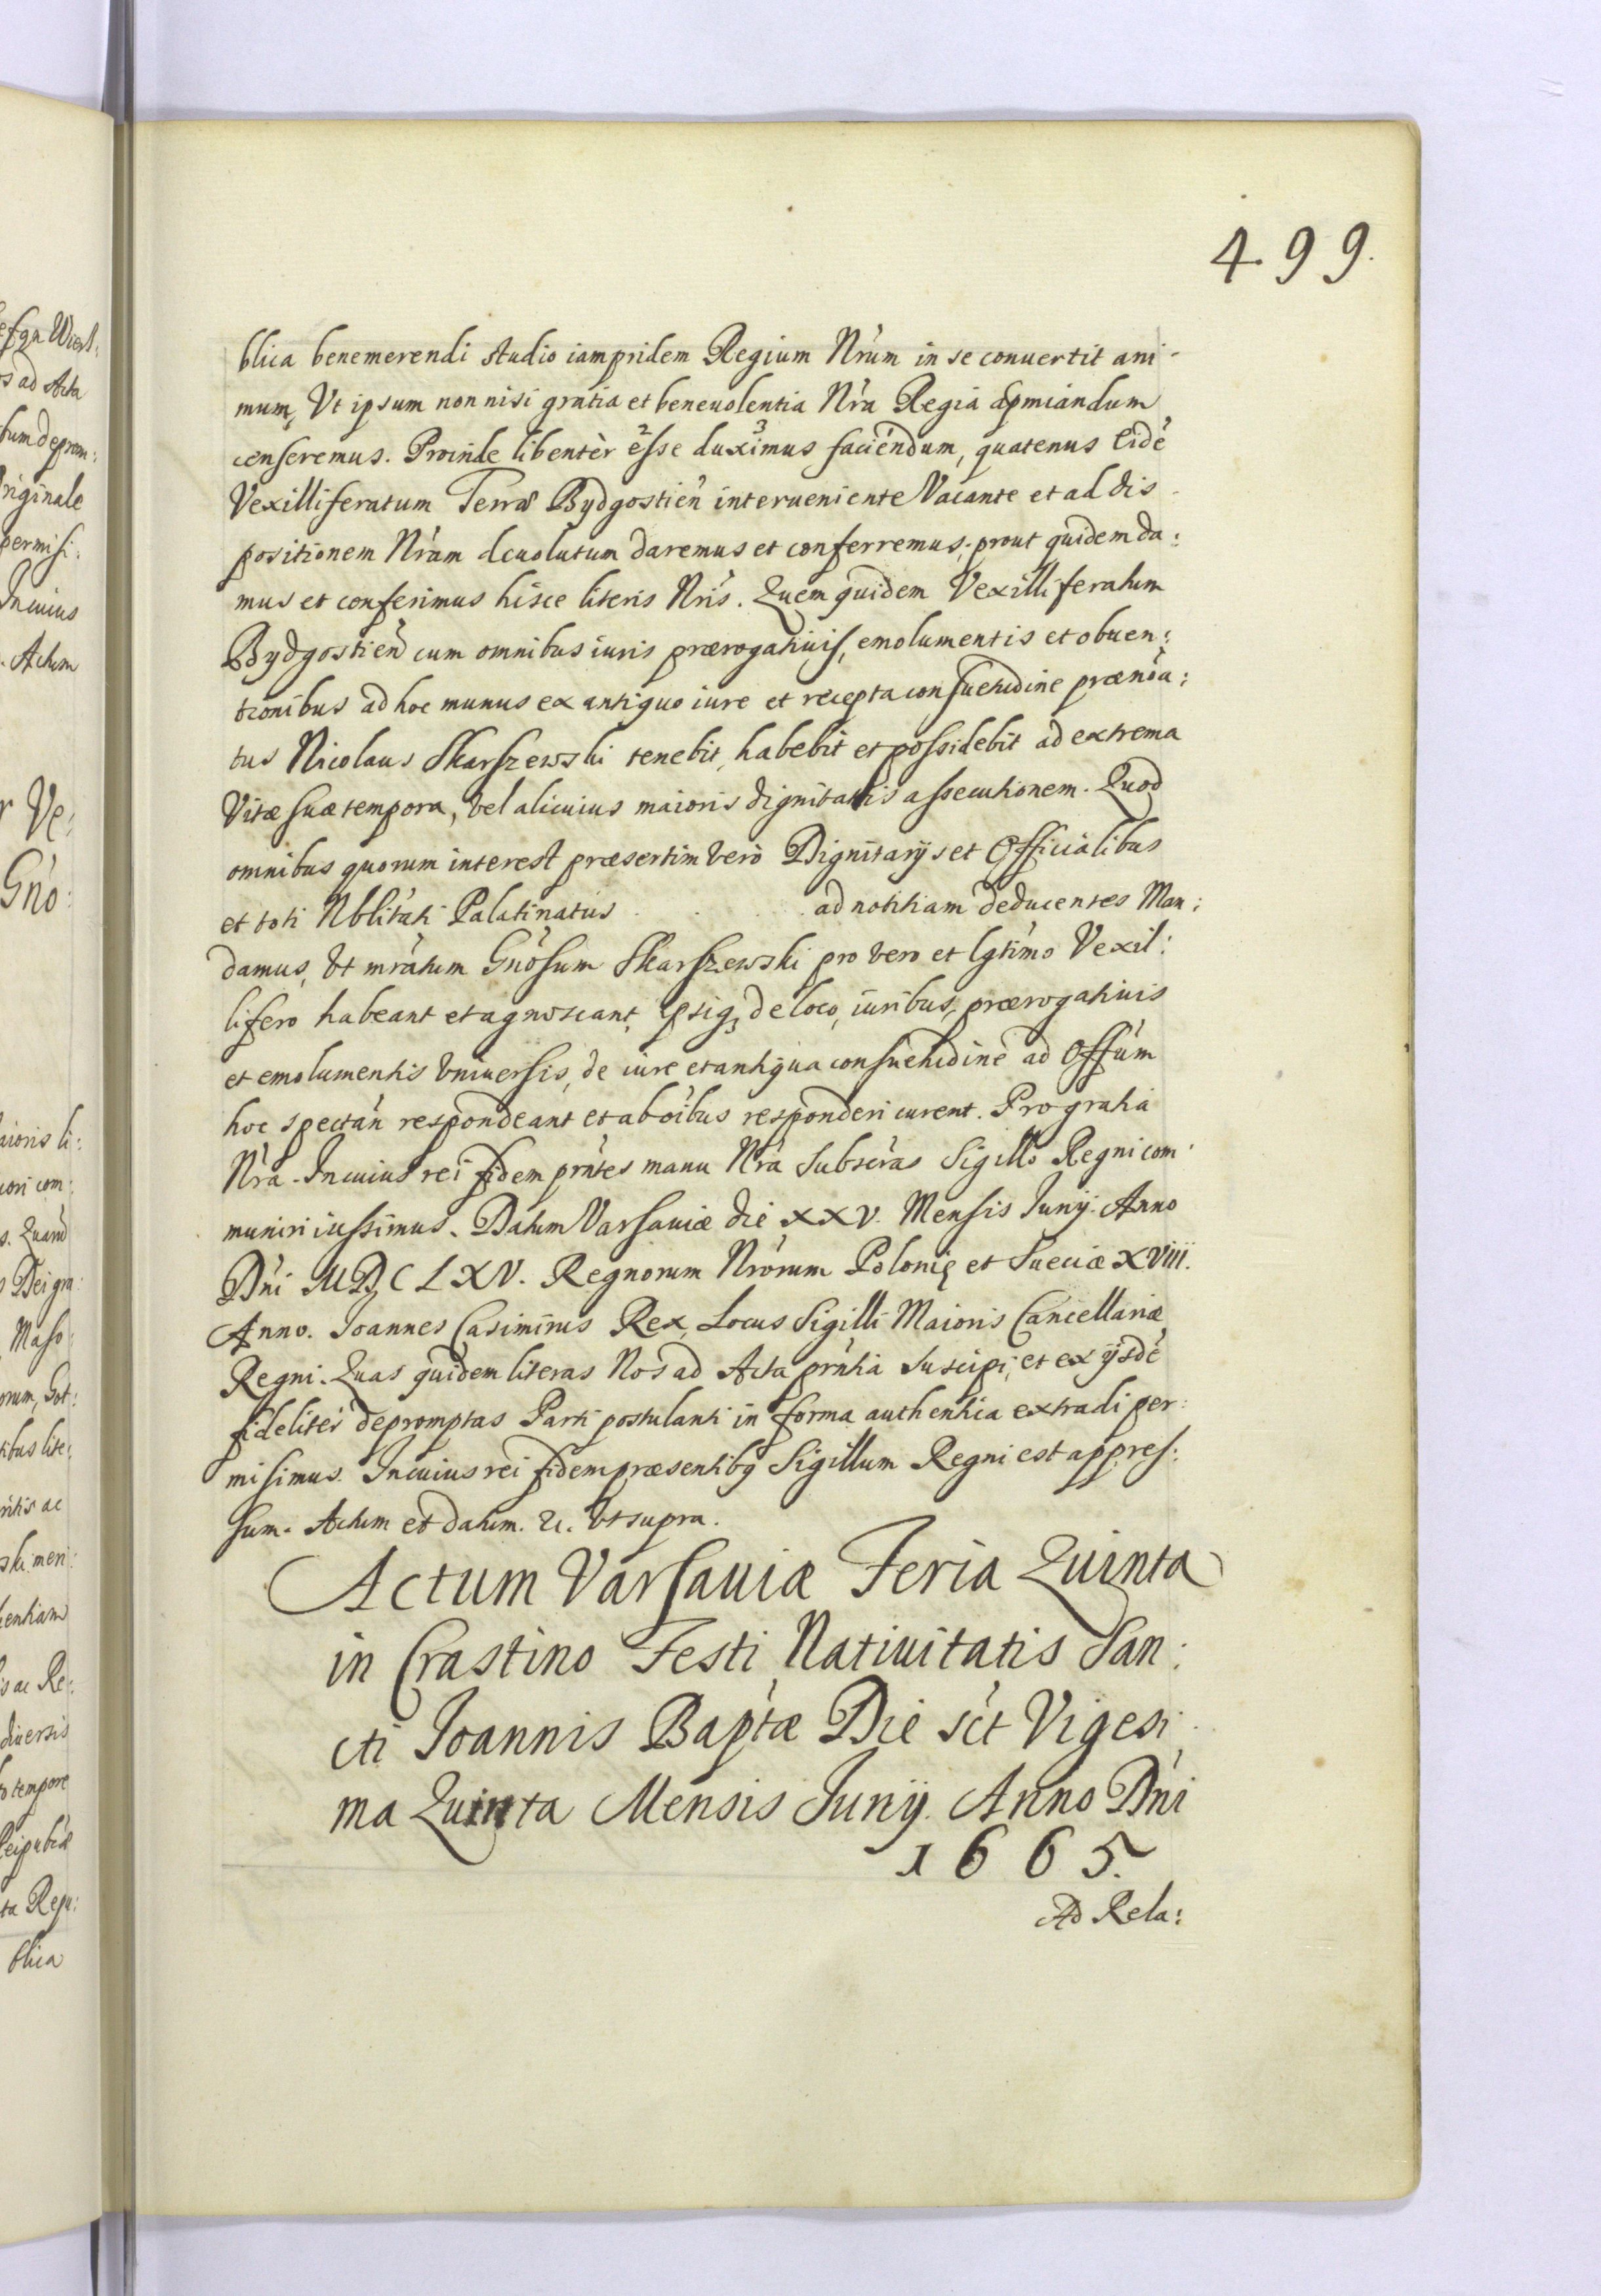 499.
blica benemerendi studio iampridem Regium Nrum in se conuertit ani-
mum, Vt ipsum non nisi gratia et beneuolentia Nra Regia
censeremus. Proinde libenter 2 esse duximus 3 faciendum, quatenus Eidē
Vexilliferatum Terræ Bydgostień interueniente Vacante et ad dis-
positionem Nram deuolutum daremus et conferremus, prout quidem da:
mus et conferimus hisce literis Nris. Quem quidem Vexilliferatum
Bydgostień cum omnibus iuris prærogatiuis, emolumentis et obuen:
tionibus ad hoc munus ex antiquo iure et recepta consuetudine prænoa:
tus Nicolaus Skarszewski tenebit, habebit et possidebit ad extrema
Vitæ suæ tempora, vel alicuius maioris dignitatis assecutionem. Quod
omnibus quorum interest præsertim verò Dignitarijs et Officialibus
et toti Nblitati Palatinatus . . . . ad notitiam deducentes Man:
damus, Vt mratum Gnosum Skarszewski pro vero et lgtimo Vexil:
lifero habeant et agnoscant, Ipsiq, de loco, iuribus, prærogatiuis
et emolumentis vniuersis, de iure et antiqua consuetudine ad Offum
hoc spectań respondeant et ab oibus responderi curent. Pro gratia
Nra. In cuius rei fidem prntes manu Nra Subscras Sigillo Regni com:
muniri iussimus. Datum Varsauiæ die XXV. Mensis Junij. Anno
Dni MDCLXV. Regnorum Nrorum Polonię et Sueciæ XViii.
Anno. Joannes Casimirus Rex, Locus Sigilli Maioris Cancellariæ
Regni. Quas quidem literas Nos ad Acta prntia Suscipi, et ex ijsdē
fideliter depromptas Parti postulanti in forma authentica extradi per:
misimus. In cuius rei fidem præsentibq Sigillum Regni est appres:
sum. Actum et datum. &c. Vt supra.
Actum Varsauiæ Feria Quinta
in Crastino Festi Natiuitatis San:
cti Joannis Baptæ Die sct Vigesi
ma Quinta Mensis Junij. Anno Dni
1665.
Ad Rela: